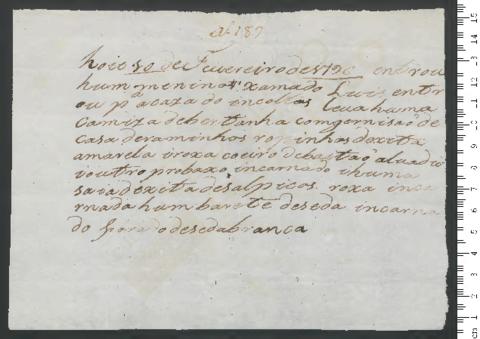 af 187
hoie 10 de Feuereiro de 1790 entrou
hum menino xamado Luis entr
ou pª a caza do incoltas leua huma
Camiza debertanha com gornisaõ de
casa de raminhos ropinhos dexita
amarela iroxa coeiro de bastaõ aluadio
ioutro probaxo incarnado ihuma
saia dexita desalpicos roxa inca
rnada hum barete deseda incarna
do forro desedabranca